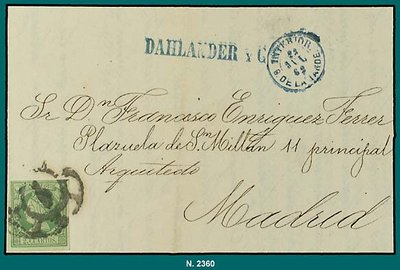 DAHLANDER Y C
INTERIOR.
6. DE LA TARDE
Sr Dn Francisco Enriquez Ferrer
Plazuela de Sn Millán 11 principal
Arquitecto
Madrid
CUARTOS
N. 2360